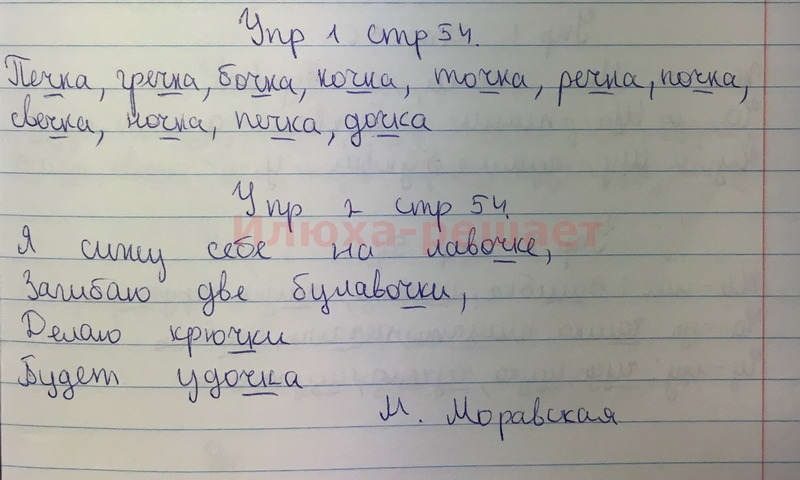 Упр 1 стр 54.
Печка, гречка, бочка, кочка, точка, речка, почка,
свечка, ночка, печка, дочка
Упр 2 стр 54.
Илюха-решает
Я сижу себе на лавочке,
Загибаю две булавочки,
Делаю крючки
Будет удочка
М. Моравская